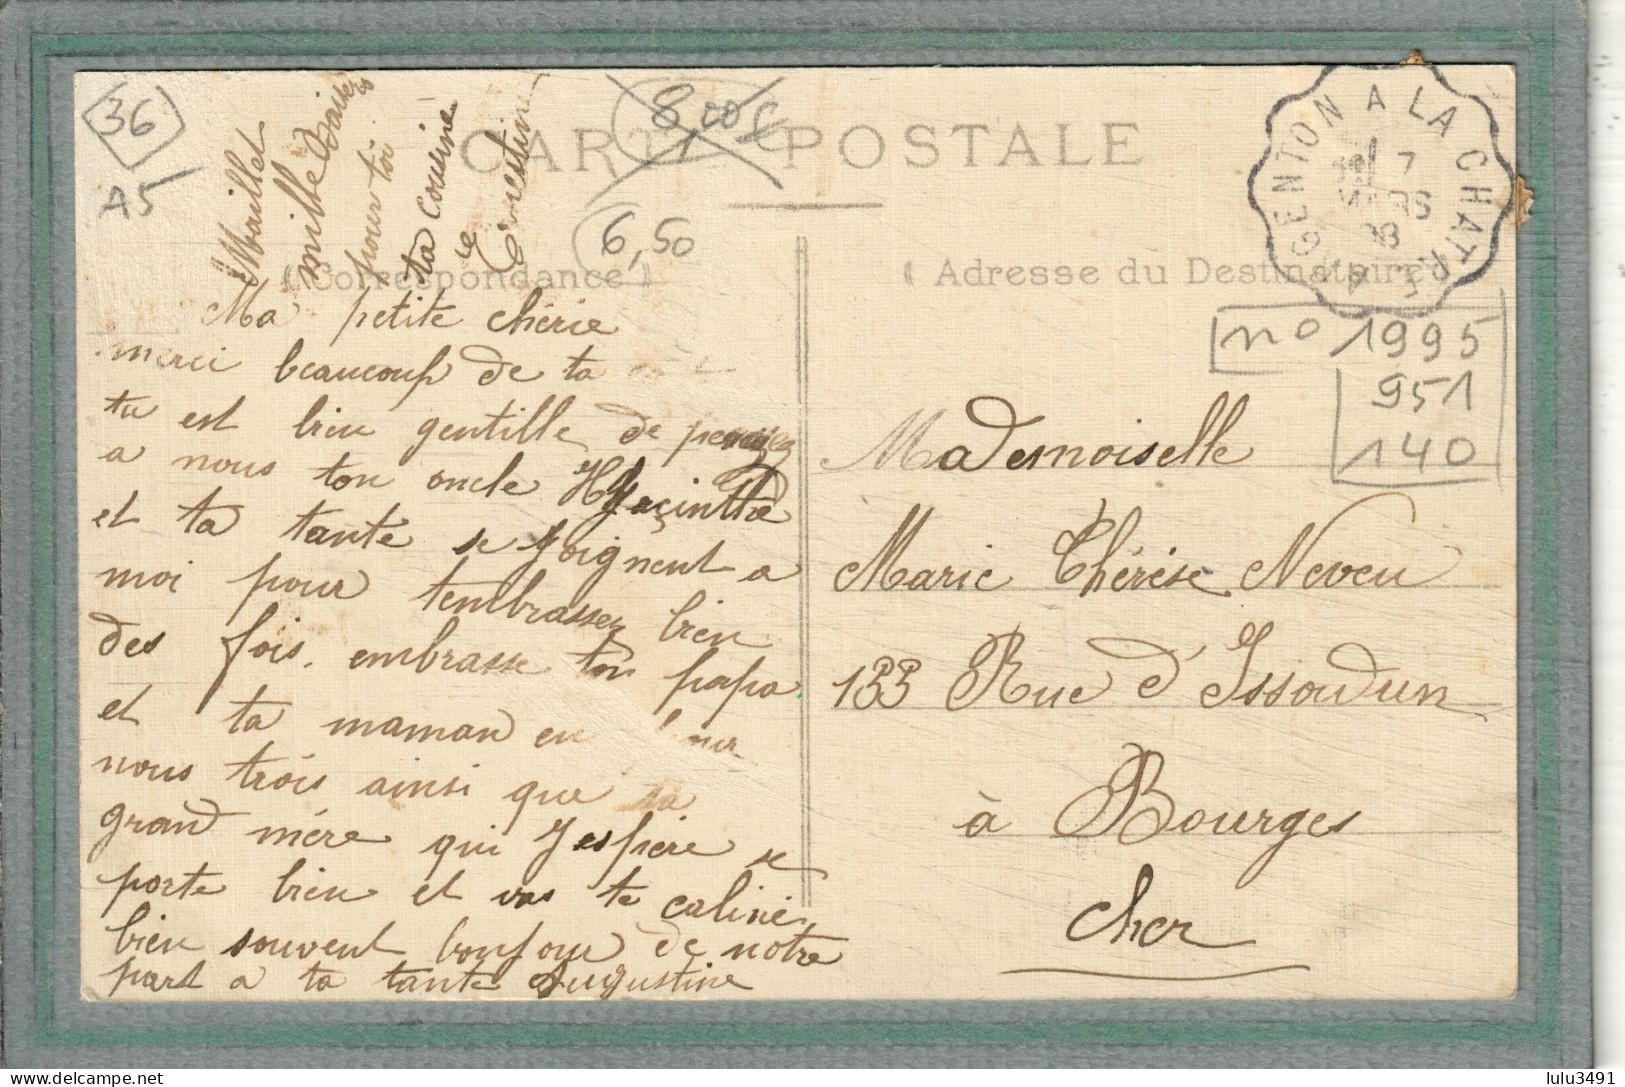 36
A5
8,00€
6,50
CARTE POSTALE
ARGENTON A LA CHATRE
7
MARS
08
(Correspondance)
(Adresse du Destinataire)
n° 1995
951
140
Maillet
mille baisers
pour toi
ta cousine
Ernestine
Ma petite chérie
merci beaucoup de ta
tu est bien gentille de pensez
a nous ton oncle Hyacinthe
et ta tante se joignent a
moi pour tembrasser bien
des fois. embrasse ton papa
et ta maman en pour
nous trois ainsi que ta
grand mère qui Jespère se
porte bien et vas te caliné
bien souvent bonjour de notre
part a ta tante Augustine
Mademoiselle
Marie Thérèse Neveu
133 Rue d'Issoudun
à Bourges
Cher
lulu3491